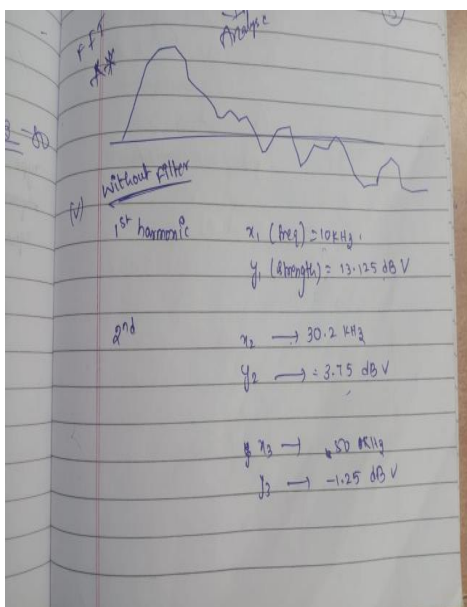 FFT
Analyse
without Filter
(V)
1st harmonic x1 (freq) = 10KHz
y1 (strength) = 13.125 dB V
2nd x2 → 30.2 KHz
y2 → = 3.75 dB V
x3 → 50 KHz
y3 → -1.25 dB V